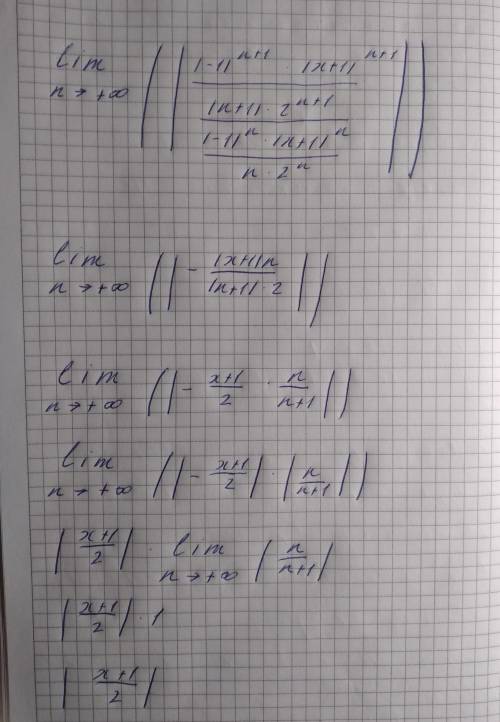 lim n→+∞ (| ((-1)^(n+1) · (x+1)^(n+1)) / ((n+1) · 2^(n+1)) / ((-1)^n · (x+1)^n) / (n · 2^n) |)
lim n→+∞ (| - (x+1)n / ((n+1) · 2) |)
lim n→+∞ (| - (x+1)/2 · n/(n+1) |)
lim n→+∞ (| - (x+1)/2 | · | n/(n+1) |)
| (x+1)/2 | · lim n→+∞ | n/(n+1) |
| (x+1)/2 | · 1
| (x+1)/2 |